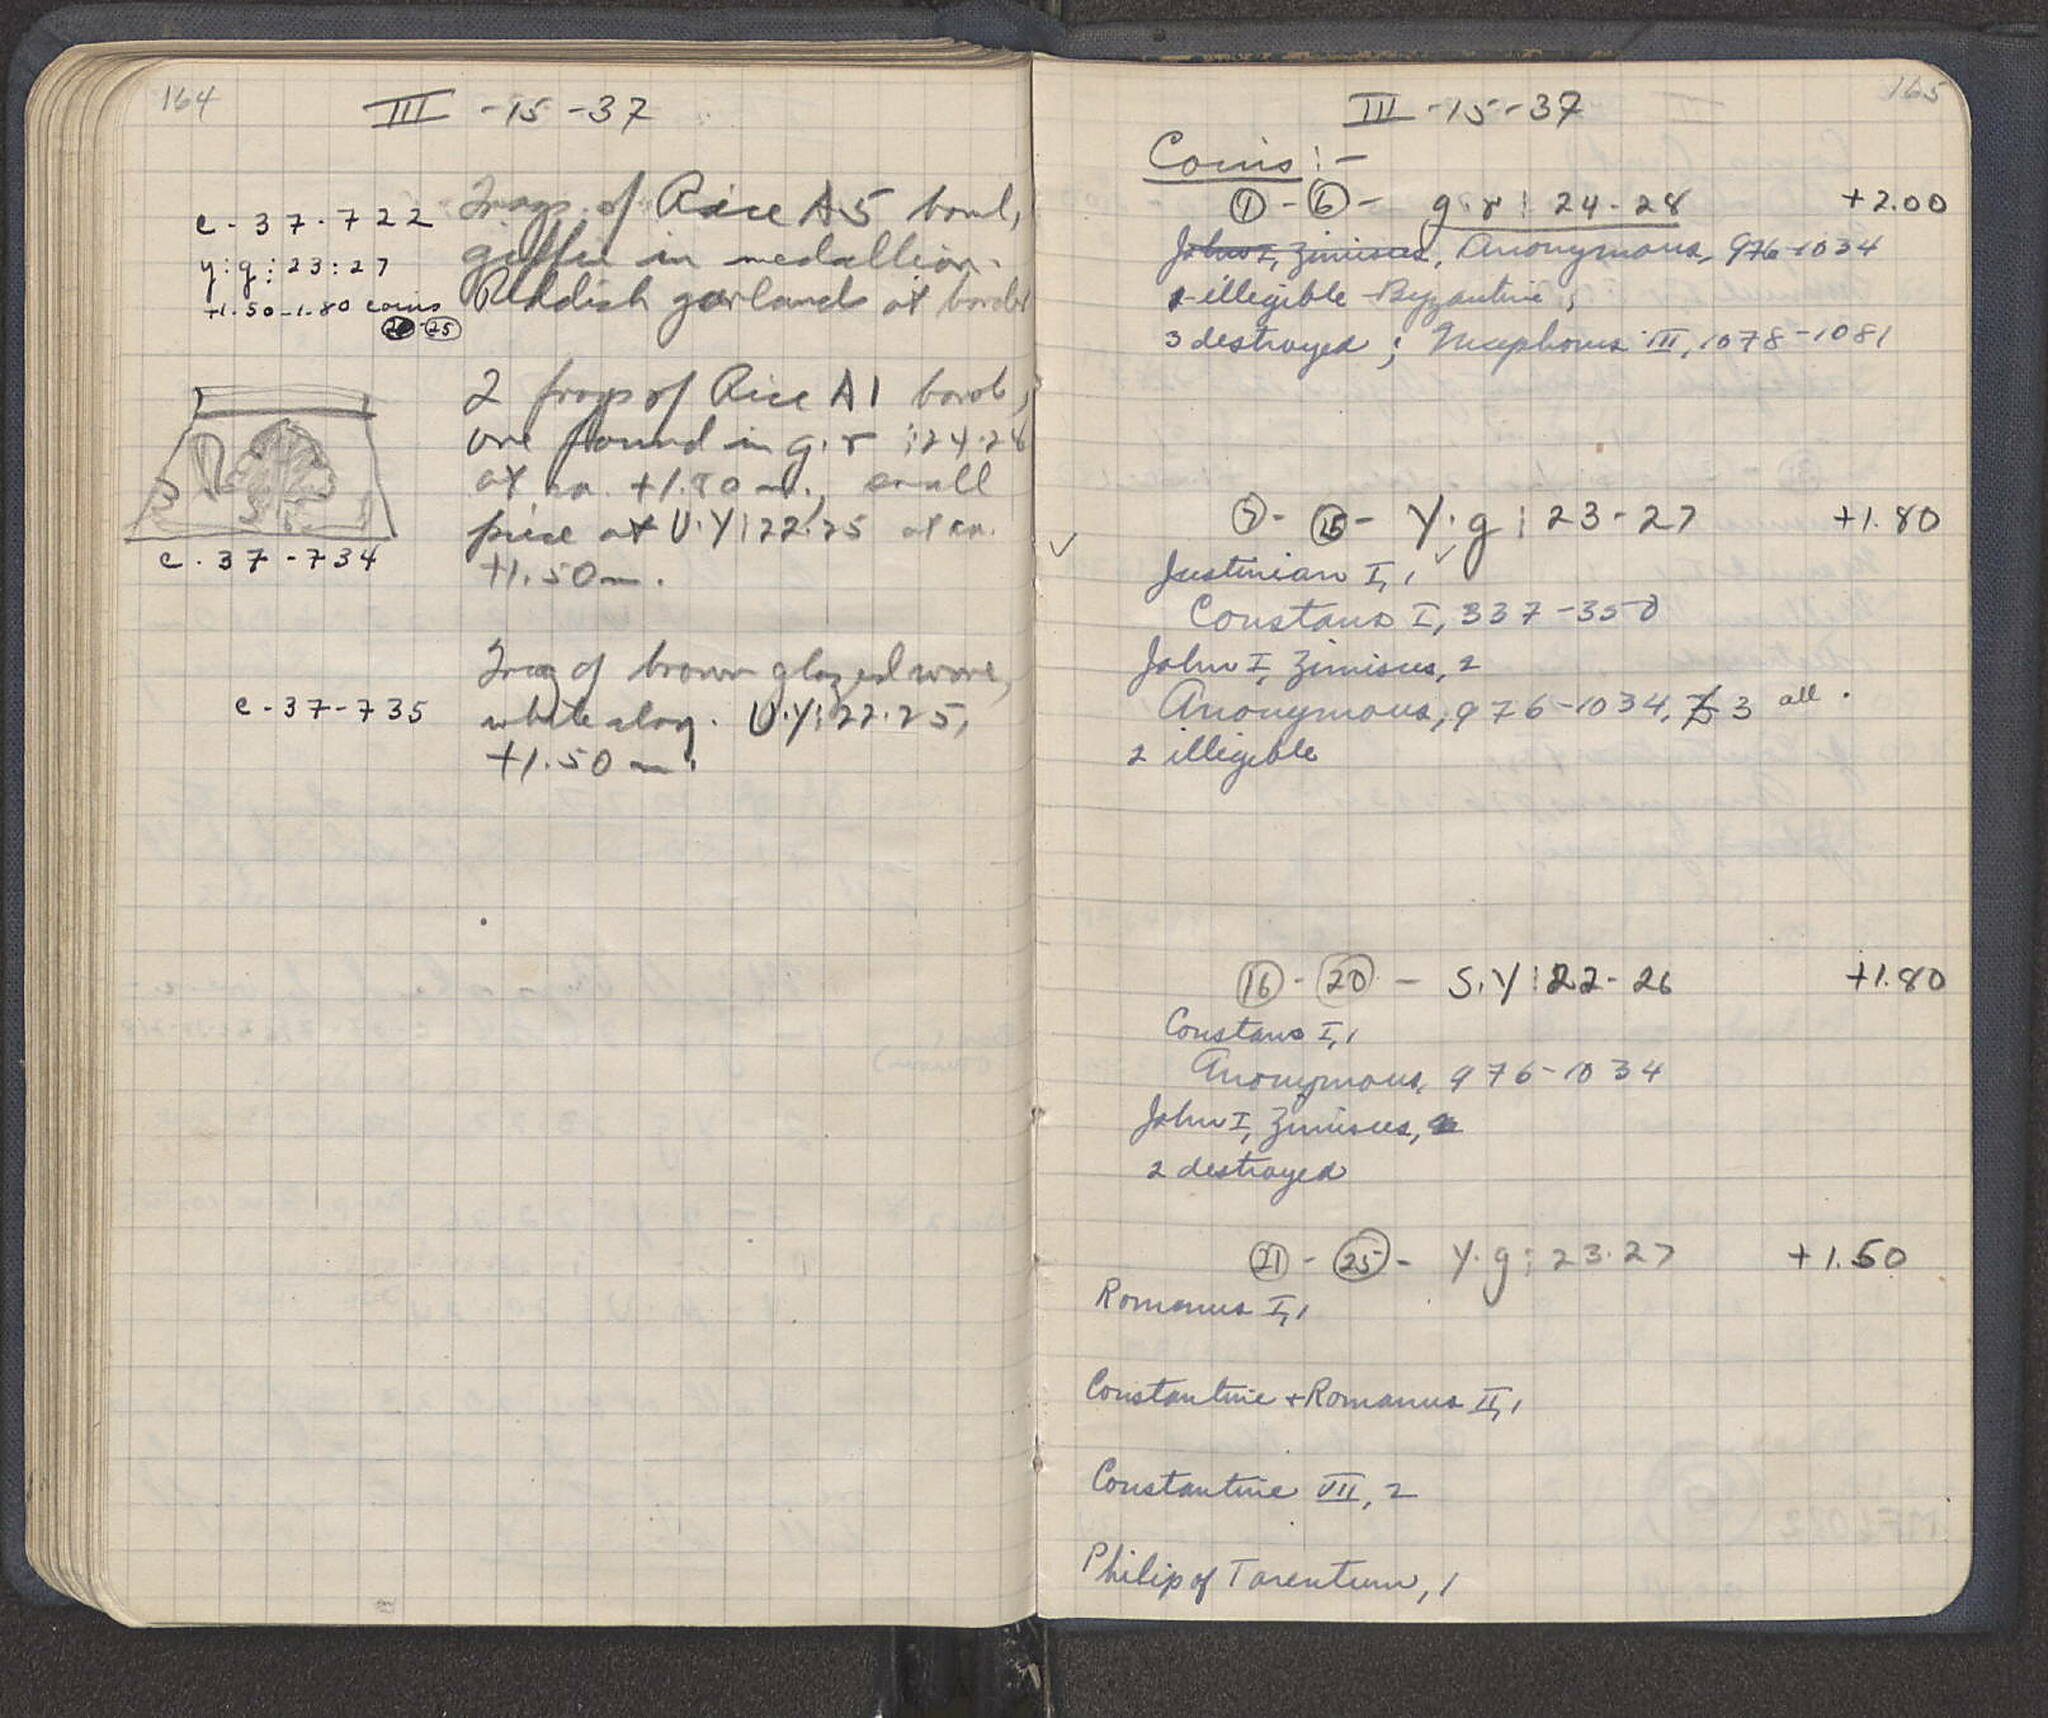 164
III - 15 - 37
c - 37 - 722
y:g:23:27
+1.50-1.80 coins
25
Frags of Rice A5 bowl,
in medallion.
Reddish garland at border
2 frags of Rice A1 bowls,
one found in g.r :24.28
at ca. +1.80 m., small
piece at U.Y:22.25 at ca.
+1.50 m.
c. 37 - 734
c - 37 - 735
Frag of brown glazed ware,
white slog. U.Y:22.25,
+1.50 m.
165
III - 15 - 37
Coins :-
① - ⑥ - g.r : 24-28 +2.00
John I, Zimisces, Anonymous, 976-1034
illegible Byzantine ;
3 destroyed ; Nicephorus III, 1078-1081
⑦ - ⑮ - Y.g : 23-27 +1.80
✓ Justinian I, 1 ✓
Constans I, 337-350
John I, Zimisces, 2
Anonymous, 976-1034, 3 all.
2 illegible
⑯ - ⑳ - S.Y:22-26 +1.80
Constans I, 1
Anonymous, 976-1034
John I, Zimisces,
2 destroyed
㉑ - ㉕ - Y.g:23.27 +1.50
Romanus I, 1
Constantine + Romanus II, 1
Constantine VII, 2
Philip of Tarentum, 1